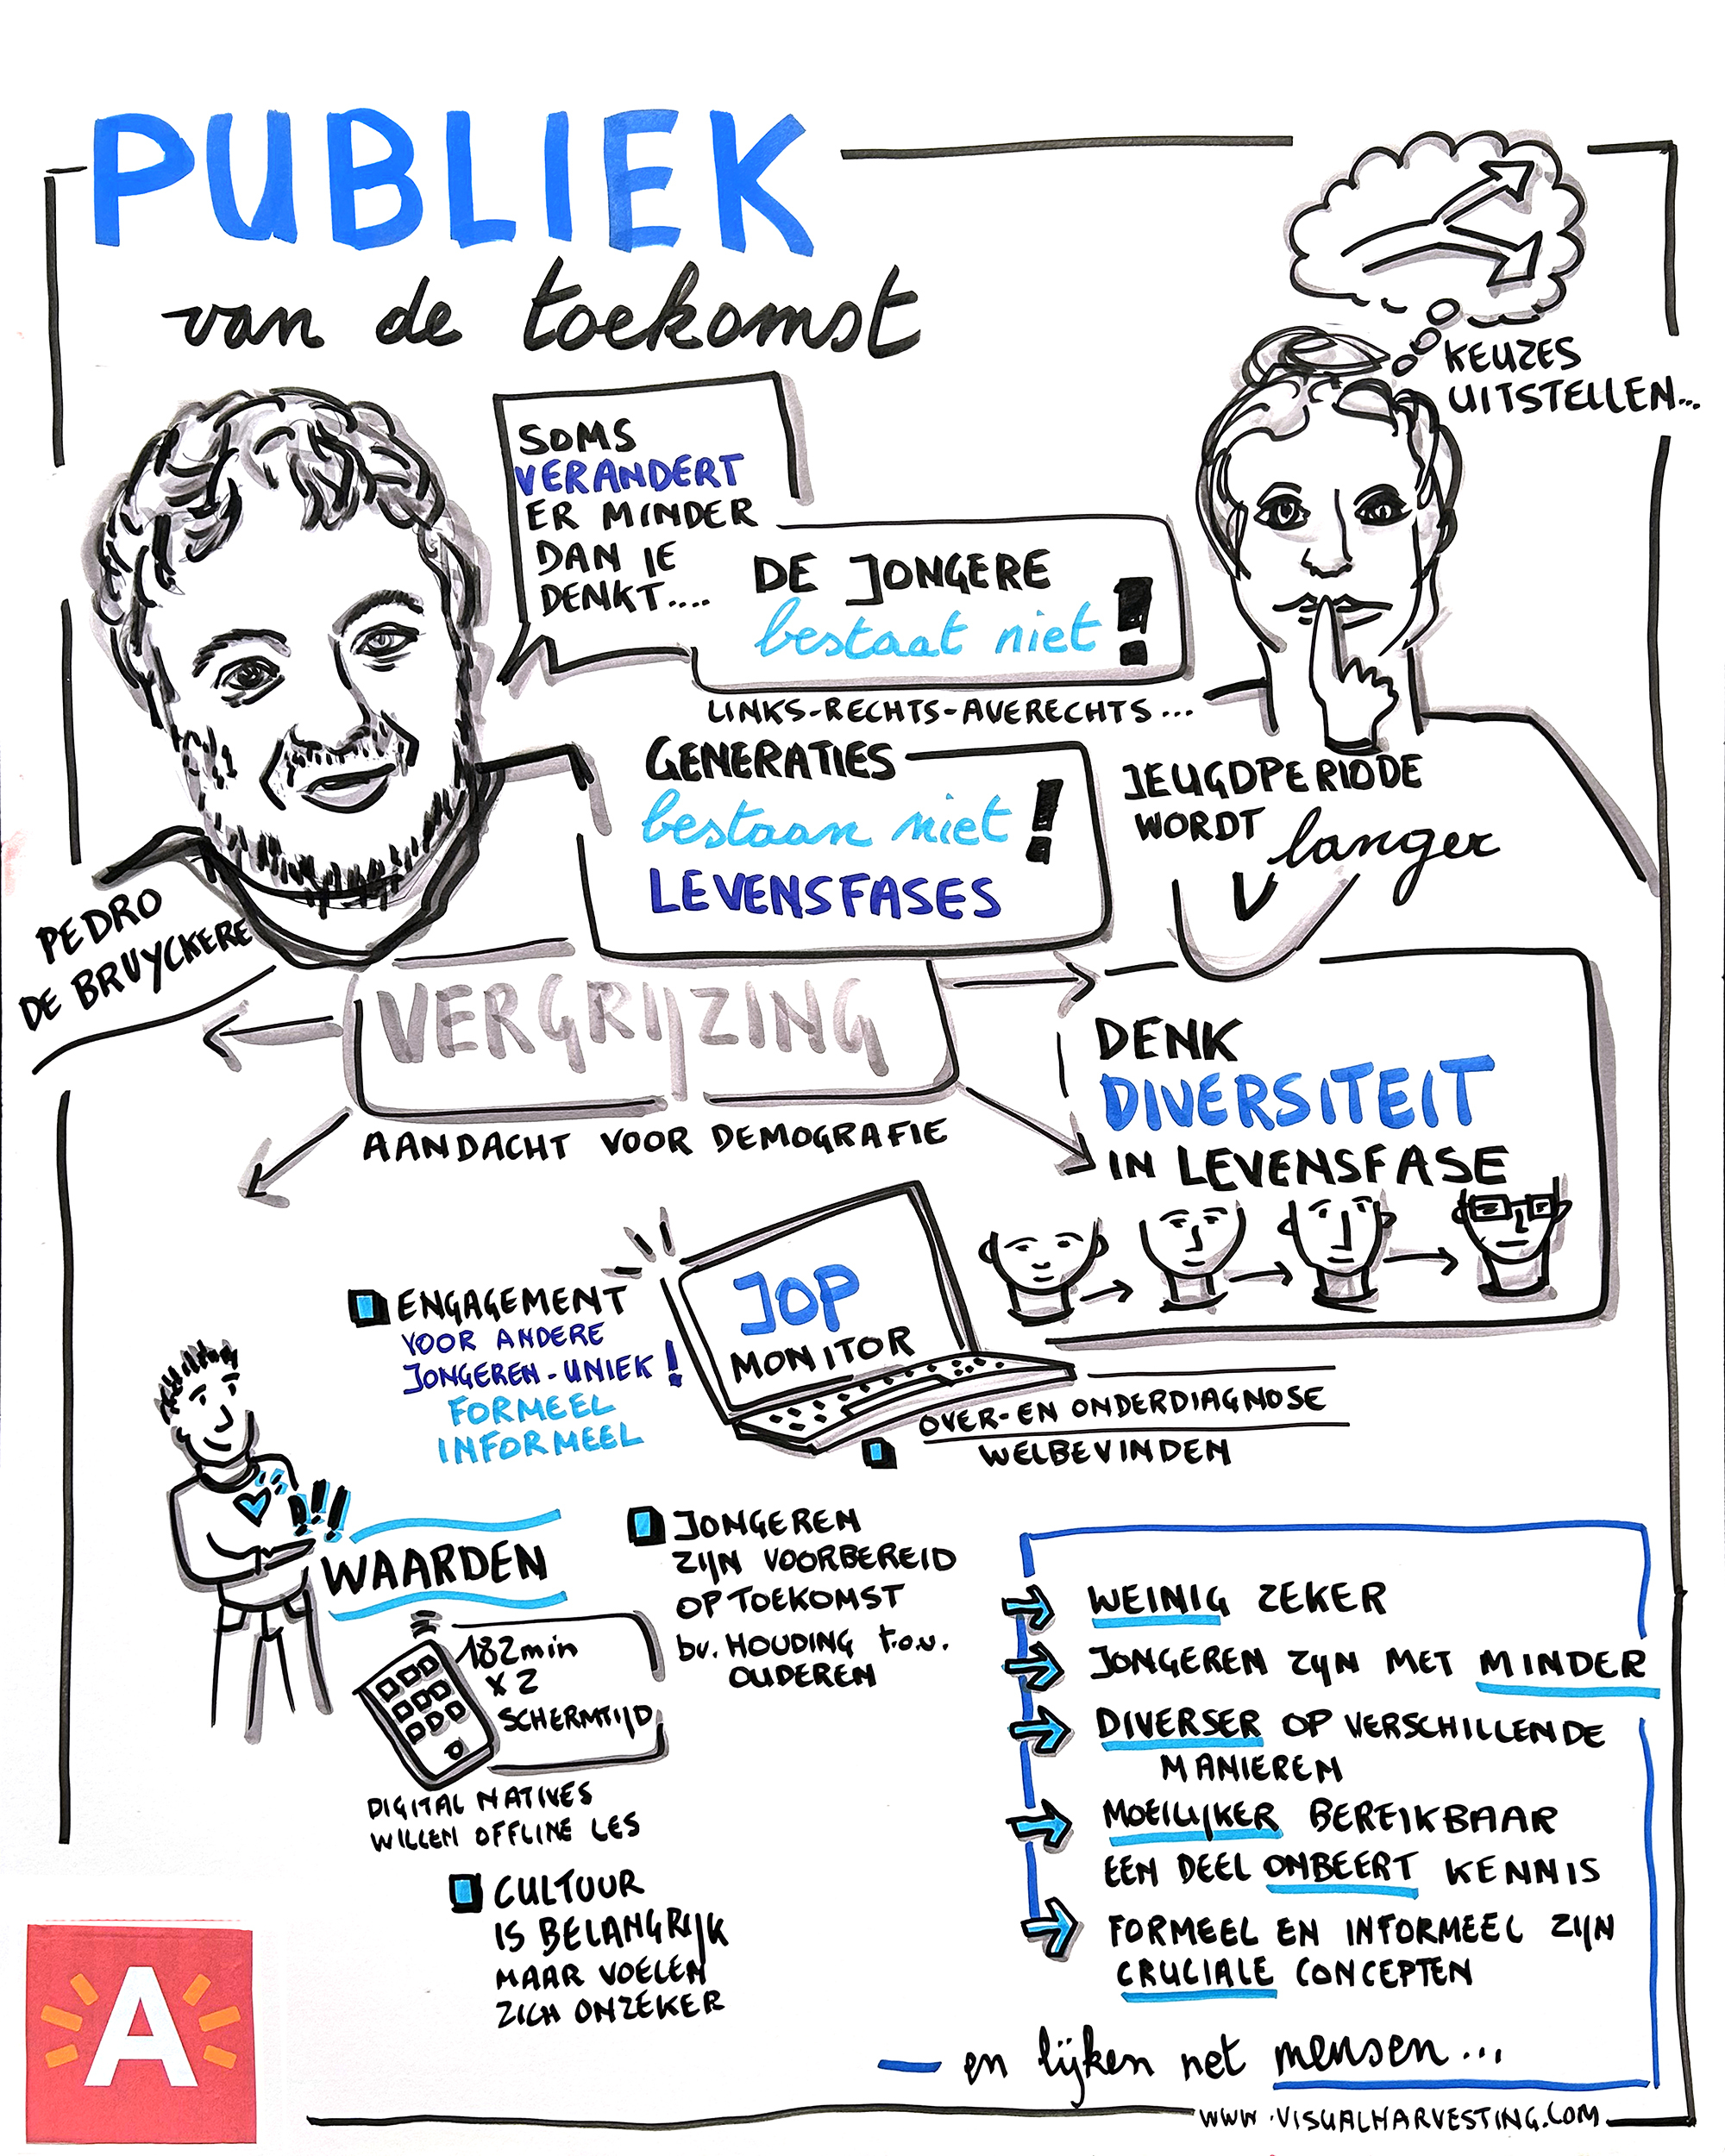 PUBLIEK
van de toekomst
KEUZES
UITSTELLEN...
SOMS
VERANDERT
ER MINDER
DAN JE
DENKT....
DE JONGERE
bestaat niet !
LINKS-RECHTS-AVERECHTS...
GENERATIES
bestaan niet !
LEVENSFASES
JEUGDPERIODE
WORDT langer
PEDRO
DE BRUYCKERE
VERGRIJZING
AANDACHT VOOR DEMOGRAFIE
DENK
DIVERSITEIT
IN LEVENSFASE
JOP
MONITOR
ENGAGEMENT
VOOR ANDERE
JONGEREN-UNIEK !
FORMEEL
INFORMEEL
OVER-EN ONDERDIAGNOSE
WELBEVINDEN
!!!
WAARDEN
182min
X2
SCHERMTIJD
DIGITAL NATIVES
WILLEN OFFLINE LES
JONGEREN
ZIJN VOORBEREID
OP TOEKOMST
bv. HOUDING t.o.v.
OUDEREN
CULTUUR
IS BELANGRIJK
MAAR VOELEN
ZICH ONZEKER
WEINIG ZEKER
JONGEREN ZIJN MET MINDER
DIVERSER OP VERSCHILLENDE
MANIEREN
MOEILIJKER BEREIKBAAR
EEN DEEL ONBEERT KENNIS
FORMEEL EN INFORMEEL ZIJN
CRUCIALE CONCEPTEN
— en lijken net mensen...
A
WWW.VISUALHARVESTING.COM